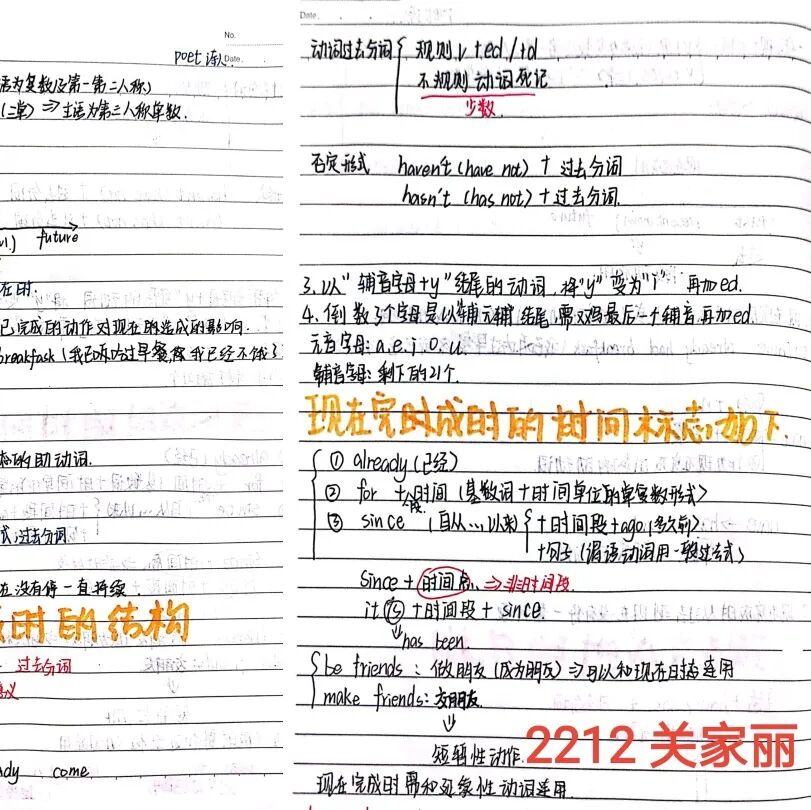 No.
Date.
poet 诗人
语为复数及第一第二人称)
(三单) ⇒ 主语为第三人称单数.
future
在时.
已完成的动作对现在的造成的影响.
breakfask (我已coloquei吃过早餐
态的助动词.
式:过去分词
在没有停一直持续.
时的结构
过去分词
come
Date.
动词过去分词 { 规则 v +ed/+d
不规则动词死记
少数
否定形式 haven't (have not) + 过去分词
hasn't (has not) + 过去分词.
3. 以"辅音字母+y"结尾的动词, 将"y"变为"i" 再加ed.
4. 倒数3个字母是以"辅元辅"结尾,需双写最后一个辅音再加ed.
元音字母: a. e. i. o. u.
辅音字母: 剩下的21个.
现在完时成时的时间标志如下.
① already (已经)
② for +时间段 (基数词+时间单位的单复数形式)
③ since (自从...以来) { +时间段+ago (多久前)
+句子 (谓语动词用一般过去式)
since + 时间点 ⇒ 非时间段
it is +时间段 + since.
has been
be friends : 做朋友 (成为朋友) ⇒ 可以和现在时态连用
make friends: 交朋友
短暂性动作.
现在完成时需和延续性动词连用.
2212 关家丽